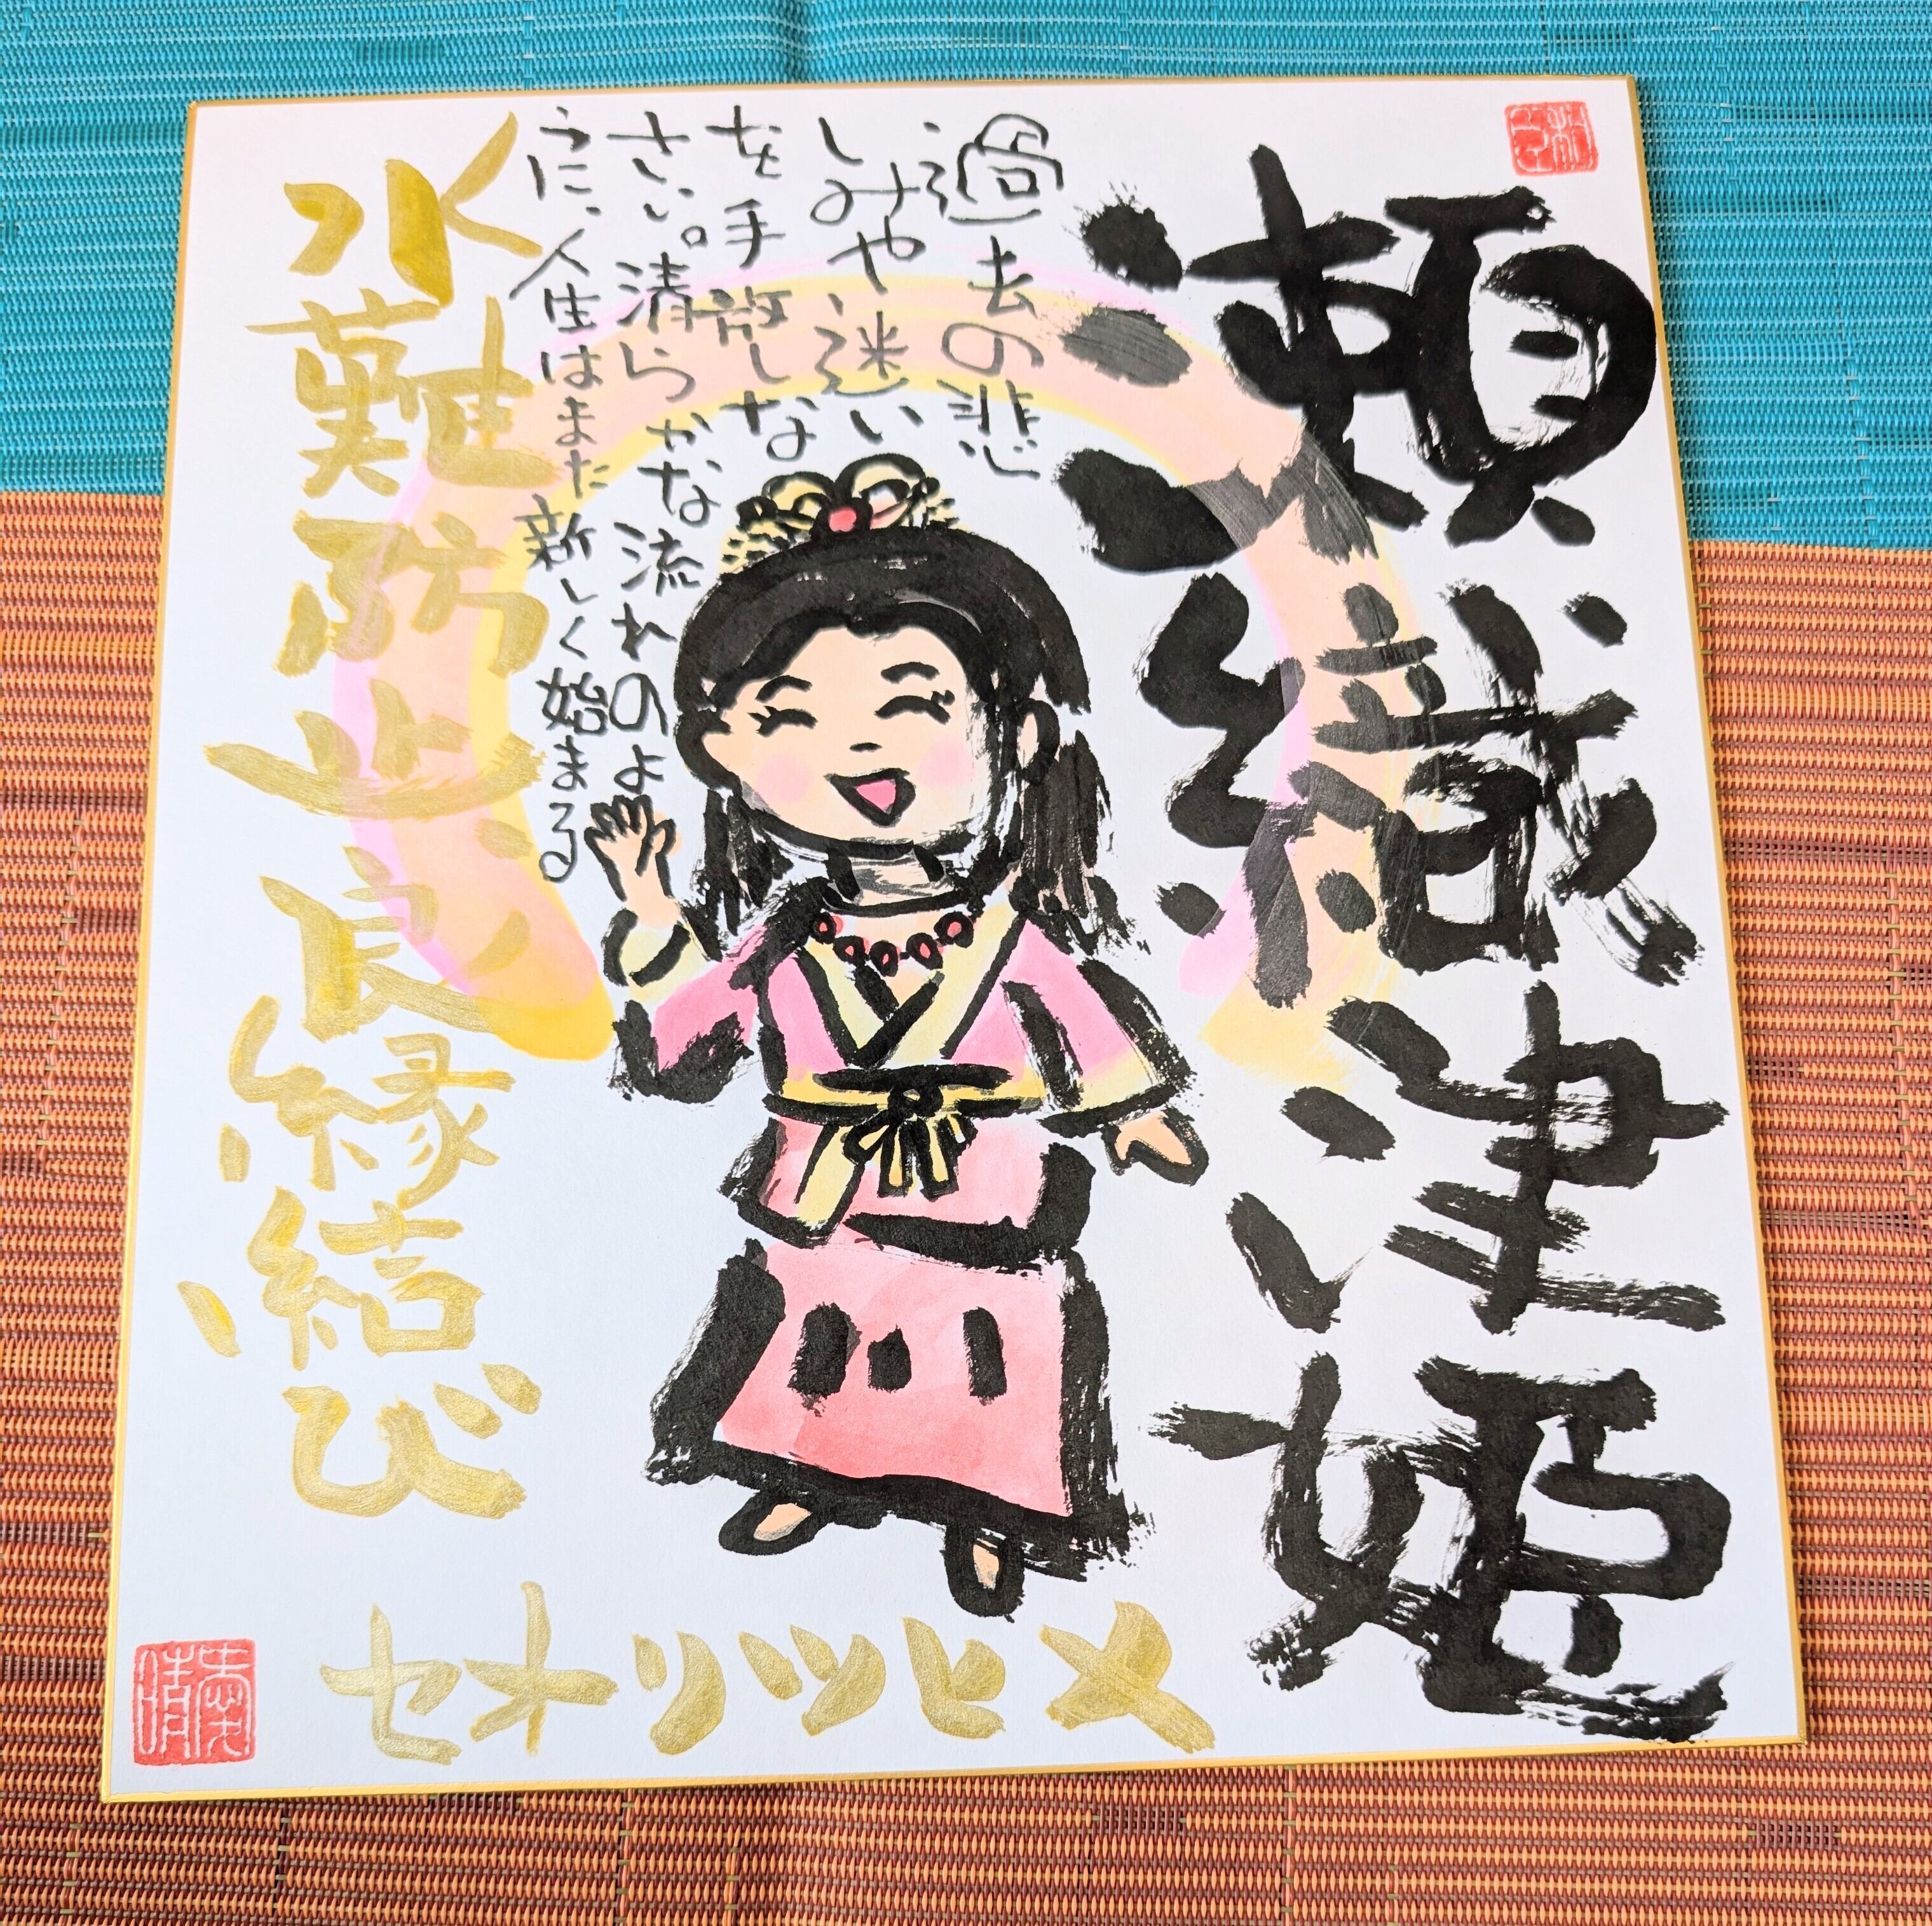 瀬織津姫
過去の悲
しみや迷い
を手放しな
さい。清らかな流れのよ
うに、人生はまた新しく始まる
水難防止、良縁結び
セオリツヒメ